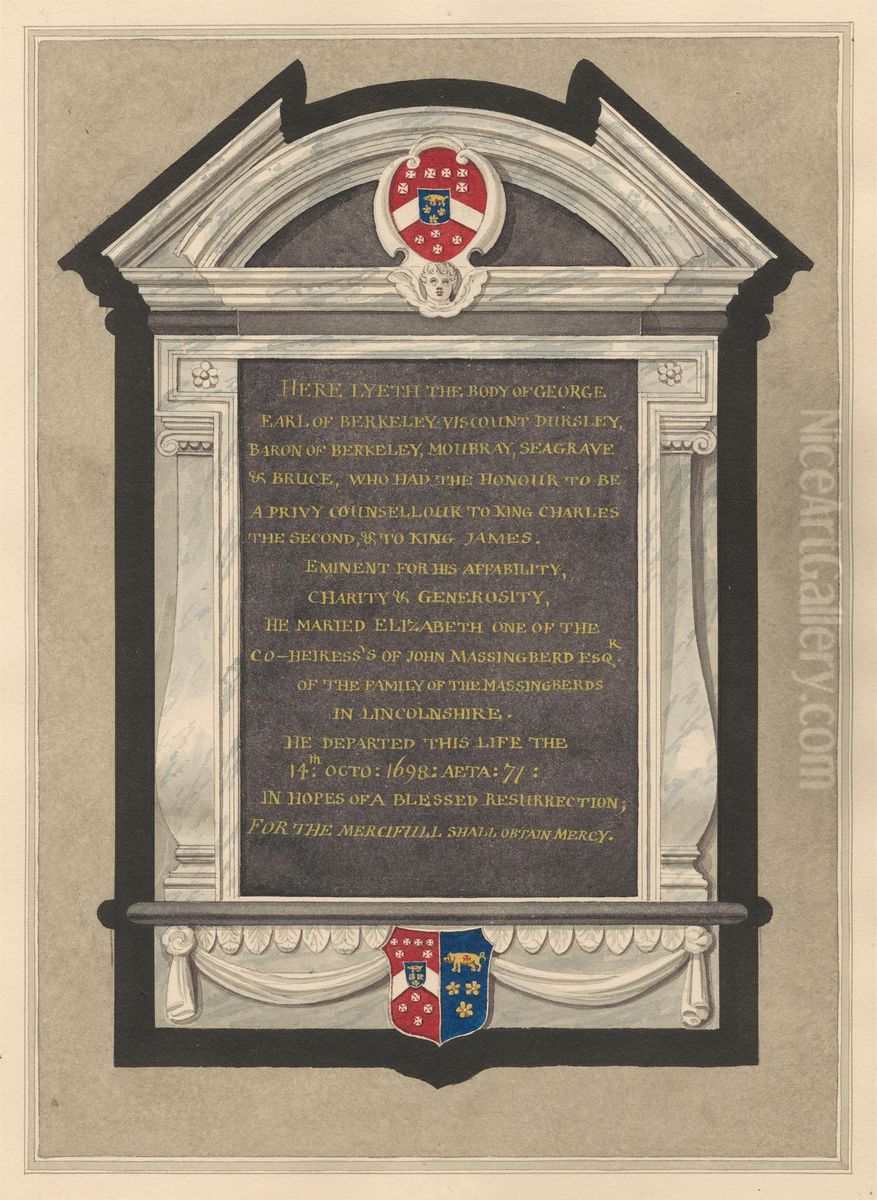 HERE LYETH THE BODY OF GEORGE
EARL OF BERKELEY VISCOUNT DURSLEY,
BARON OF BERKELEY, MOUBRAY, SEAGRAVE
& BRUCE, WHO HAD THE HONOUR TO BE
A PRIVY COUNSELLOUR TO KING CHARLES
THE SECOND, & TO KING JAMES.
EMINENT FOR HIS AFFABILITY,
CHARITY & GENEROSITY,
HE MARIED ELIZABETH ONE OF THE
CO-HEIRESS'S OF JOHN MASSINGBERD ESQR.
OF THE FAMILY OF THE MASSINGBERDS
IN LINCOLNSHIRE.
HE DEPARTED THIS LIFE THE
14th: OCTO: 1698: AETA: 71:
IN HOPES OF A BLESSED RESURRECTION;
FOR THE MERCIFULL SHALL OBTAIN MERCY.
NiceArtGallery.com